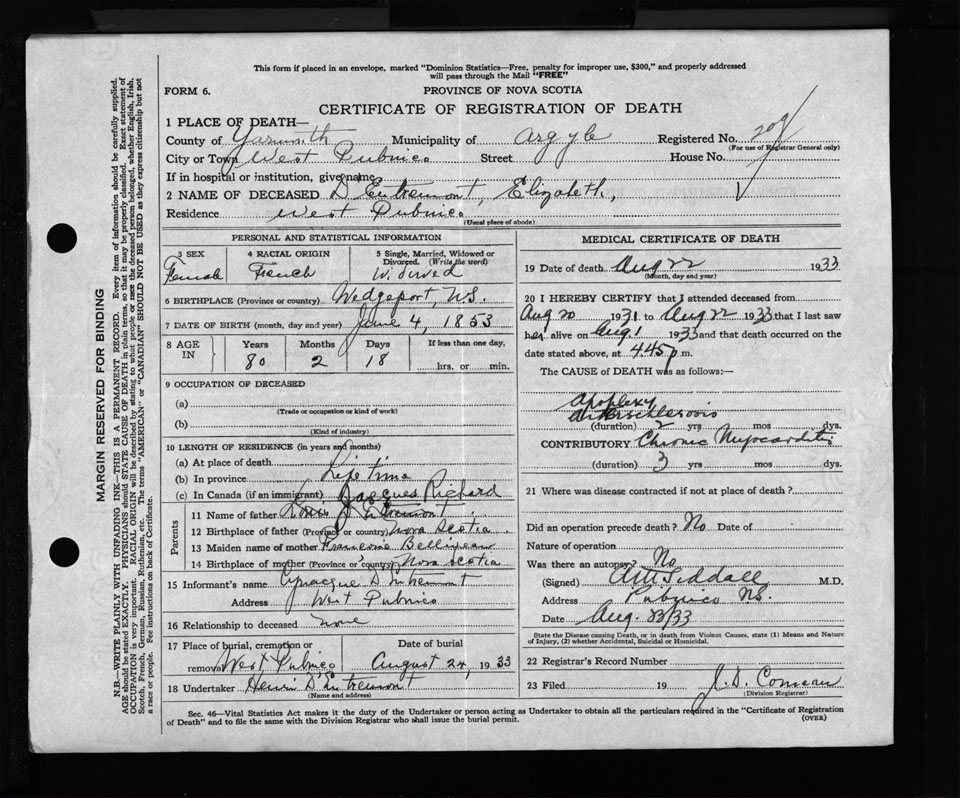 This form if placed in an envelope, marked "Dominion Statistics—Free, penalty for improper use, $300," and properly addressed
will pass through the Mail "FREE"
FORM 6.
PROVINCE OF NOVA SCOTIA
CERTIFICATE OF REGISTRATION OF DEATH
1 PLACE OF DEATH—
County of Yarmouth Municipality of Argyle Registered No. 209
(For use of Registrar General only)
City or Town West Pubnico Street House No.
If in hospital or institution, give name
2 NAME OF DECEASED D'Entremont, Elizabeth,
Residence West Pubnico
(Usual place of abode)
PERSONAL AND STATISTICAL INFORMATION
3 SEX 4 RACIAL ORIGIN 5 Single, Married, Widowed or
Divorced. (Write the word)
Female French Widowed
6 BIRTHPLACE (Province or country) Wedgeport, N.S.
7 DATE OF BIRTH (month, day and year) June 4, 1853
8 AGE IN Years Months Days If less than one day,
80 2 18 hrs. or min.
9 OCCUPATION OF DECEASED
(a)
(Trade or occupation or kind of work)
(b)
(Kind of industry)
10 LENGTH OF RESIDENCE (in years and months)
(a) At place of death
(b) In province Life time
(c) In Canada (if an immigrant) Jacques Richard
Parents
11 Name of father Louis D'Entremont
12 Birthplace of father (Province or country) Nova Scotia
13 Maiden name of mother Francoise Belliveau
14 Birthplace of mother (Province or country) Nova Scotia
15 Informant's name Cyriacque D'Entremont
Address West Pubnico
16 Relationship to deceased none
17 Place of burial, cremation or Date of burial
removal West Pubnico August 24, 1933
18 Undertaker Henri D'Entremont
(Name and address)
MEDICAL CERTIFICATE OF DEATH
19 Date of death Aug 22 1933
(Month, day and year)
20 I HEREBY CERTIFY that I attended deceased from
Aug 20 1931 to Aug 22 1933 that I last saw
her alive on Aug 1 1933 and that death occurred on
date stated above, at 4.45 p m.
The CAUSE of DEATH was as follows:—
Apoplexy
Arteriosclerosis
(duration) 2 yrs mos dys.
CONTRIBUTORY Chronic Myocarditis
(duration) 3 yrs mos dys.
21 Where was disease contracted if not at place of death?
Did an operation precede death? No Date of
Nature of operation
Was there an autopsy? No
(Signed) A M Siddall M.D.
Address Pubnico N.S.
Date Aug. 23/33
State the Disease causing Death, or in death from Violent Causes, state (1) Means and Nature
of Injury, (2) whether Accidental, Suicidal or Homicidal.
22 Registrar's Record Number
23 Filed 19 J. D. Comeau
(Division Registrar)
Sec. 46—Vital Statistics Act makes it the duty of the Undertaker or person acting as Undertaker to obtain all the particulars required in the "Certificate of Registration
of Death" and to file the same with the Division Registrar who shall issue the burial permit.
(OVER)
MARGIN RESERVED FOR BINDING
N.B.—WRITE PLAINLY WITH UNFADING INK—THIS IS A PERMANENT RECORD. Every item of information should be carefully supplied.
AGE should be stated EXACTLY. PHYSICIANS should STATE CAUSE OF DEATH in plain terms, so that it may be properly classified. Exact statement of
OCCUPATION is very important. RACIAL ORIGIN will be described by stating to what people or race the deceased person belonged, whether English, Irish,
Scotch, French, German, Russian, Ruthenian, etc. The terms "AMERICAN" or "CANADIAN" SHOULD NOT BE USED as they express citizenship but not
a race or people. See instructions on back of Certificate.